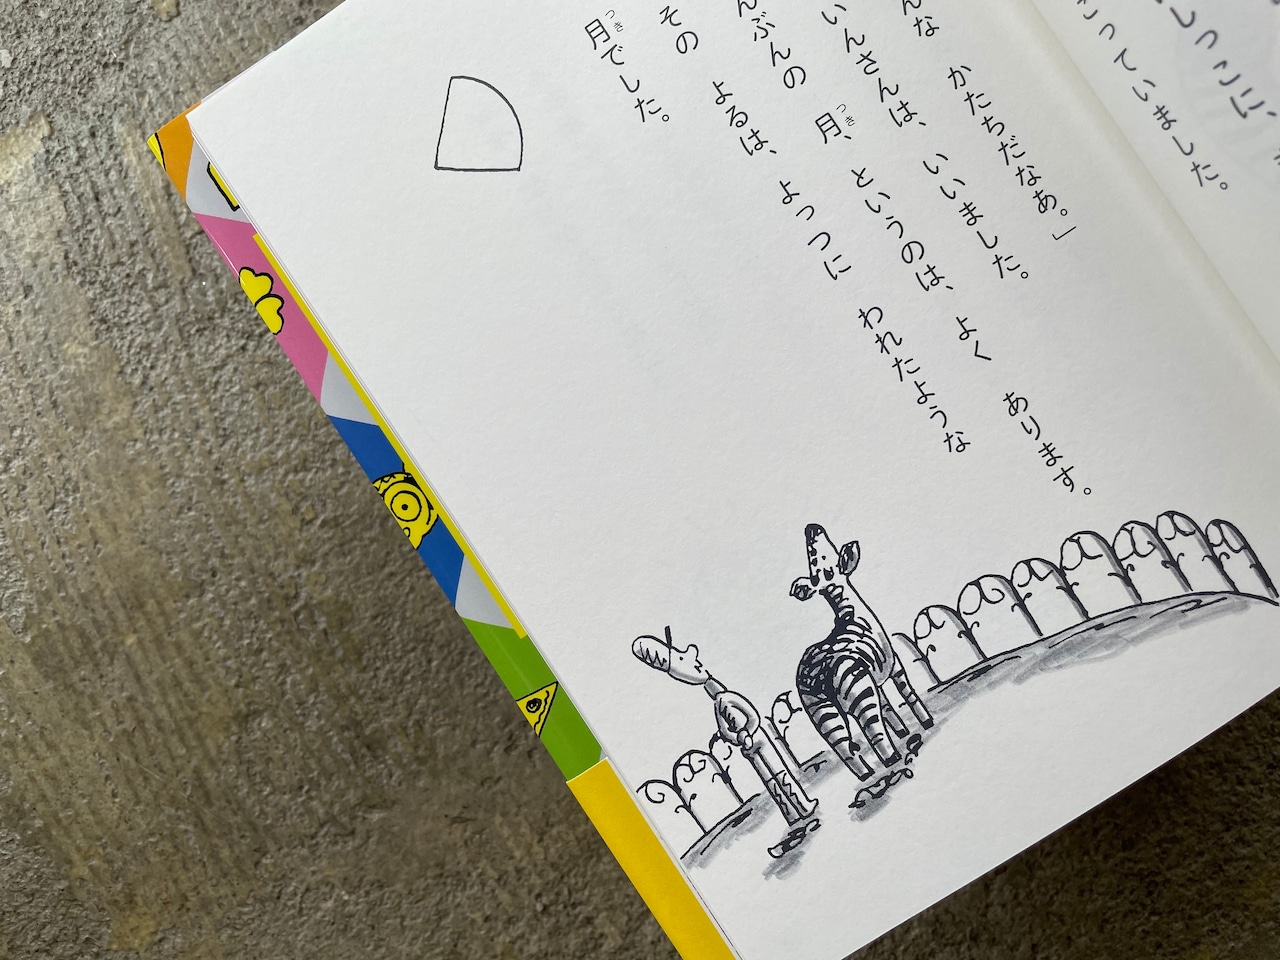 しっこに、
こっていました。
んな かたちだなあ。」
いんさんは、 いいました。
んぶんの 月、 というのは、 よく あります。
その よるは、 よっつに われたような
月でした。
つき
つき